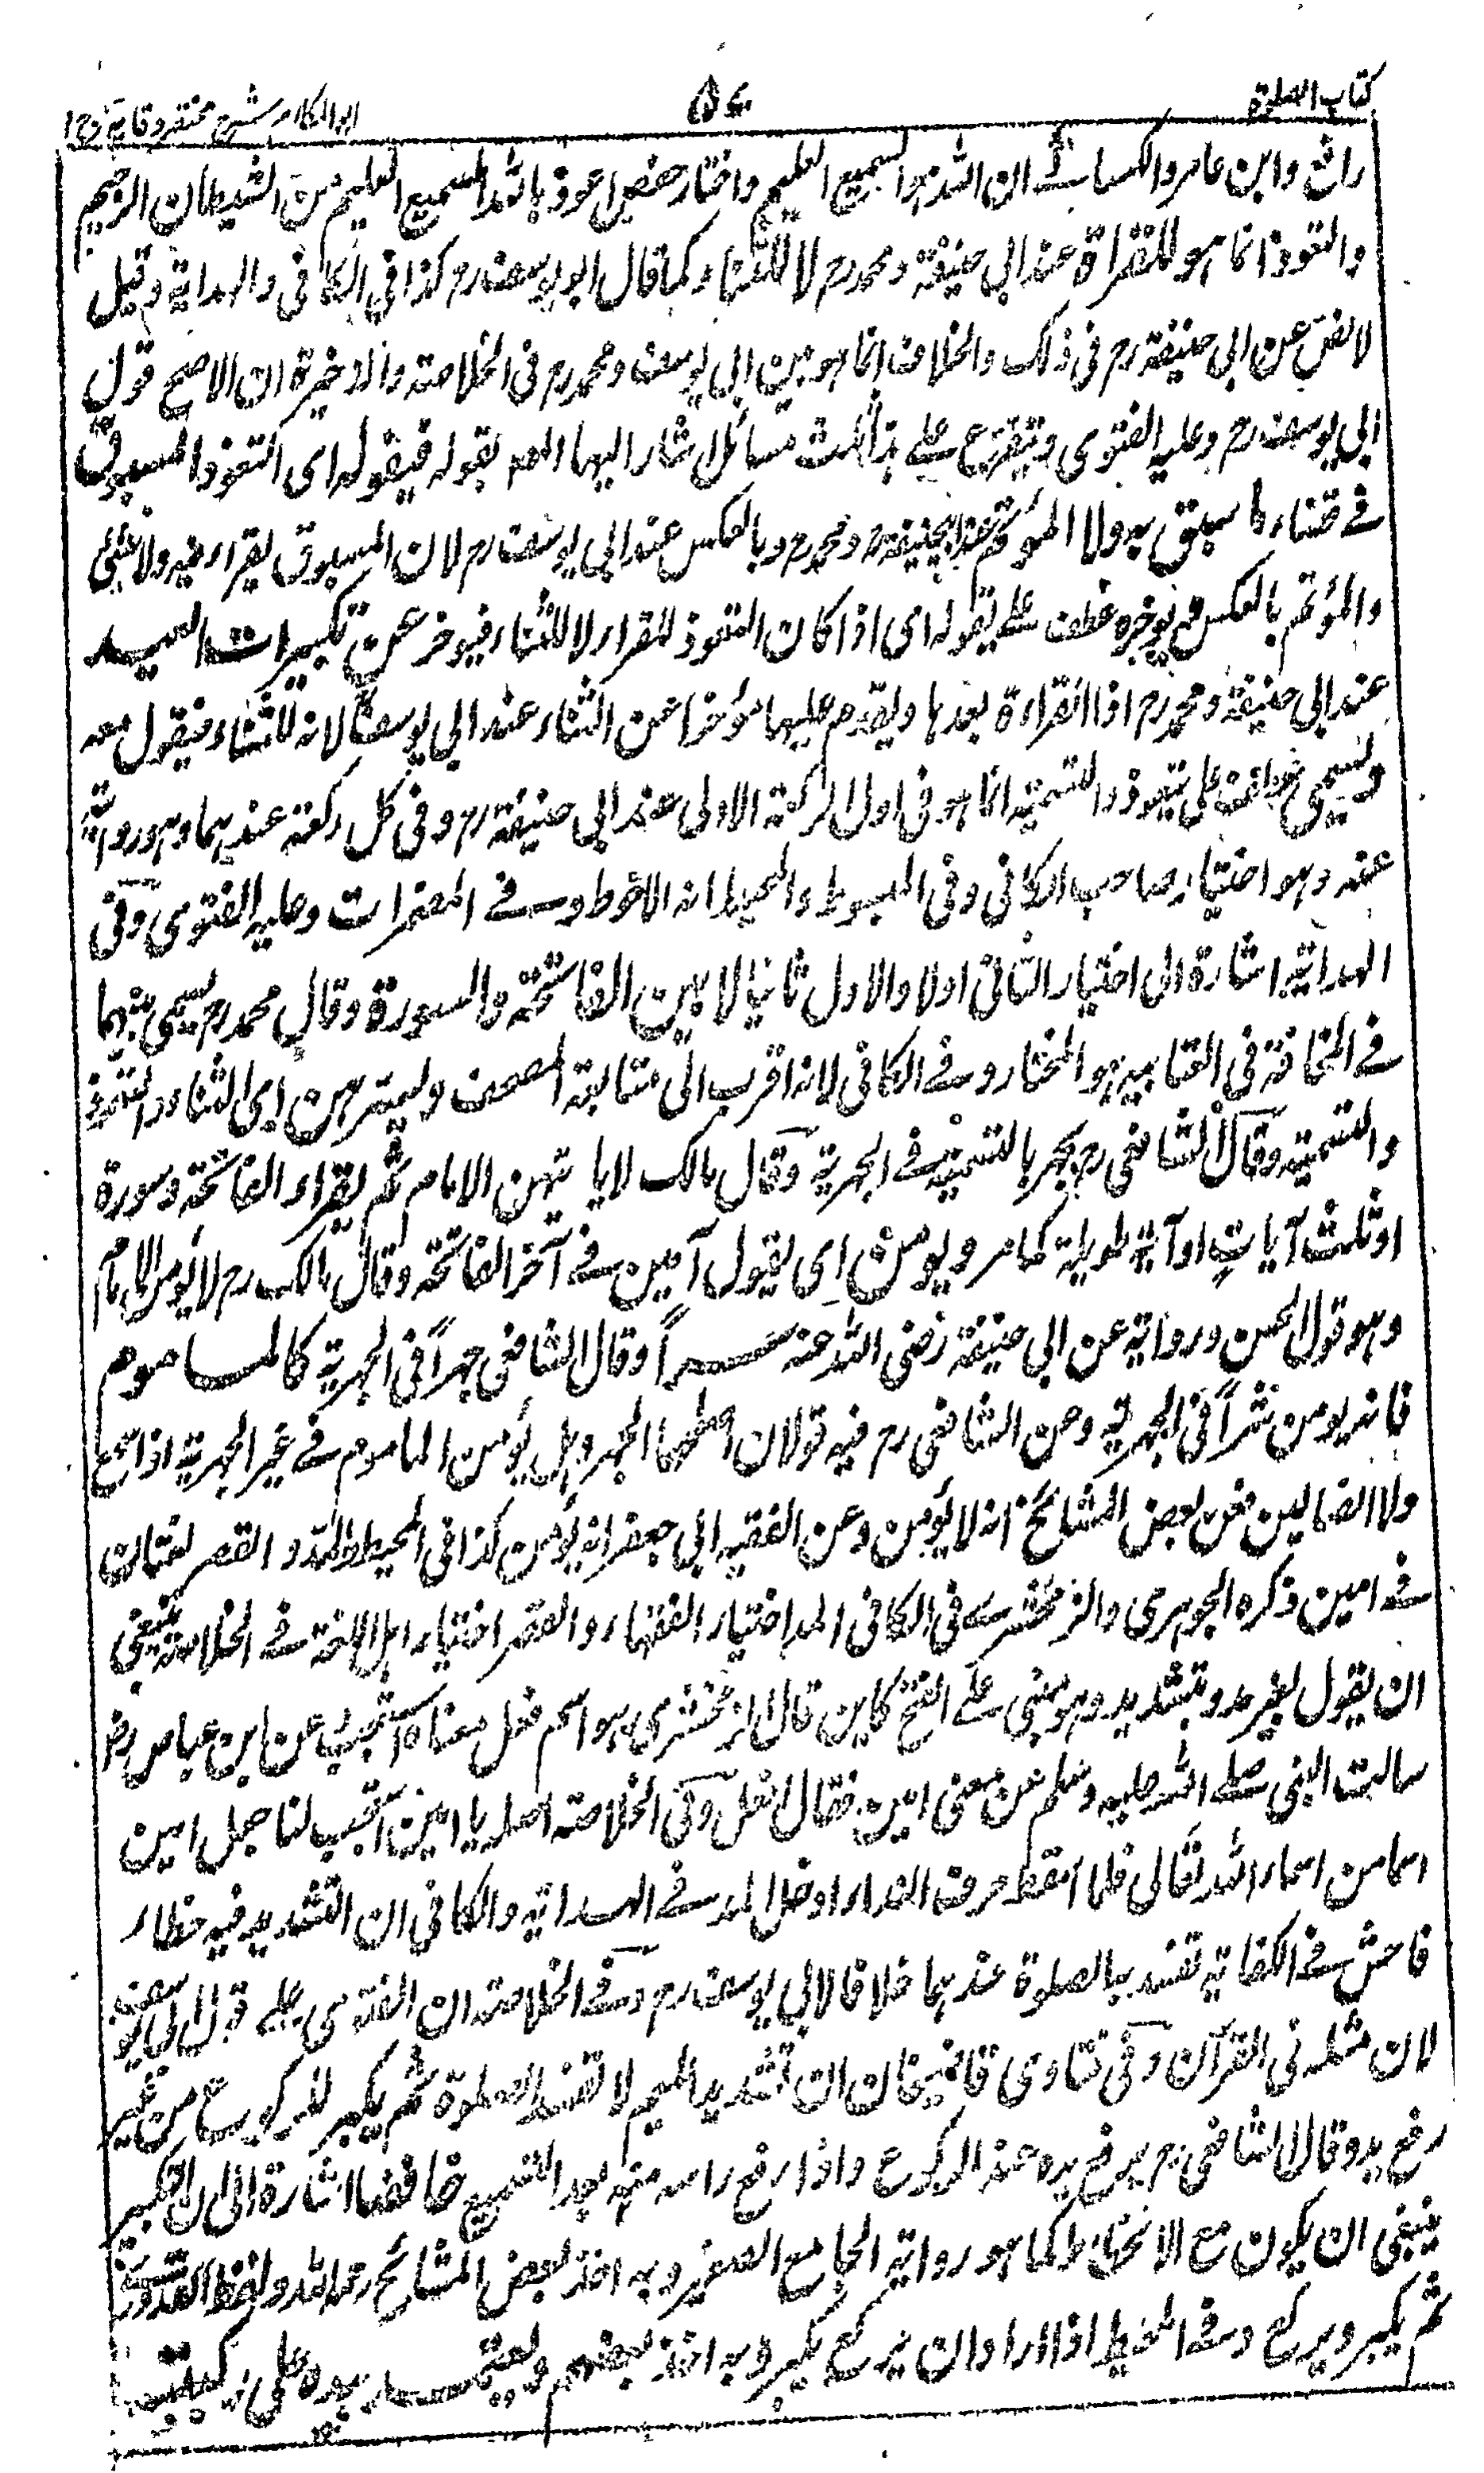 كتاب الصلوة
٥٧
ابو المكارم شرح مختصر وقاية ج ١
رافع وابن عامر والكسائى ان الله هو السميع العليم واختار حفص اعوذ بالله السميع العليم من الشيطان الرجيم
والتعوذ انما هو للقراءة عند ابى حنيفة ومحمد رح لا للثناء كما قال ابو يوسف رح كذا فى الكافى والهداية وقيل
لا نص عن ابى حنيفة رح فى ذلك والخلاف انما هو بين ابى يوسف ومحمد رح فى الخلاصة والذخيرة ان الاصح قول
ابى يوسف رح وعليه الفتوى ويتفرع على هذا ثلث مسائل اشار اليها المص بقوله فيقوله اى التعوذ المسبوق
فى قضاء ما سبق به ولا المؤتم عند ابيحنيفة رح ومحمد رح وبالعكس عند ابى يوسف رح لان المسبوق يقرأ فيه ولا يثنى
والمؤتم بالعكس ويؤخره عطف على يقوله اى اذا كان التعوذ للقراء لا للثناء فيؤخر عن تكبيرات العيد
عند ابى حنيفة ومحمد رح اذ القراءة بعدها ويقدم عليها مؤخرا عن الثناء عند ابى يوسف لانه للثناء فيقول معه
ويسمى عطف على يتعوذ والتسمية انما هو فى اول الركعة الاولى عند ابى حنيفة رح وفى كل ركعة عندهما وهو رواية
عنه وهو اختيار صاحب الكافى وفى المبسوط والمحيط انه الاحوط وفى المضمرات وعليه الفتوى وفى
الهداية اشارة الى اختيار الثانى اولا والاول ثانيا لا بين الفاتحة والسورة وقال محمد رح يسمى بينهما
فى المخافتة فى العتابية هو المختار وفى الكافى لانه اقرب الى متابعة المصحف ويسرهن اى الثناء والتعوذ
والتسمية وقال الشافعى رح يجهر بالتسمية فى الجهرية وقال مالك لا ياتيهن الامام ثم يقرأ الفاتحة وسورة
او ثلث آيات او آية طويلة كما مر ويؤمن اى يقول آمين فى آخر الفاتحة وقال مالك رح لا يؤمن الامام
وهو قول الحسن ورواية عن ابى حنيفة رضى الله عنه سراً وقال الشافعى جهراً فى الجهرية كالماموم
فانه يؤمن سراً فى الجهرية وعن الشافعى رح فيه قولان اظهرهما الجهر وهل يؤمن الماموم فى غير الجهرية اذا سمع
ولا الضالين فعن بعض المشائخ انه لا يؤمن وعن الفقيه ابى جعفر انه يؤمن كذا فى المحيط والمد والقصر لغتان
فى امين ذكره الجوهرى والزمخشرى فى الكافى المد اختيار الفقهاء والقصر اختيار اهل اللغة فى الخلاصة ينبغى
ان يقول بغير مد وبتشديد وهو مبنى على الفتح كاين قال الزمخشرى هو اسم فعل معناه استجب عن ابن عباس رض
سالت النبى صلى الله عليه وسلم عن معنى امين فقال افعل وفى الخلاصة اصله يا امين استجب لنا جعل امين
اسما من اسماء الله تعالى فلما اسقط حرف النداء ادخل المد فى الهداية والكافى ان التشديد فيه خطاء
فاحش فى الكفاية تفسد به الصلوة عندهما خلافا لابى يوسف رح وفى الخلاصة ان الفتوى على قول ابى يوسف
لان مثله فى القرآن وفى فتاوى قاضيخان ان تشديد الميم لا تفسد الصلوة ثم يكبر للركوع من غير
رفع يد وقال الشافعى رح يرفع يده عند الركوع واذا رفع راسه منه بعد التسميع خافضا اشارة الى ان التكبير
ينبغى ان يكون مع الانحطاط كما هو رواية الجامع الصغير وبه اخذ بعض المشائخ رحمه الله ولفظ القدورى
ثم يكبر ويركع وفى المحيط اذا اراد ان يركع يكبر وبه اخذ بعضهم ويعتمد بيده على ركبتيه